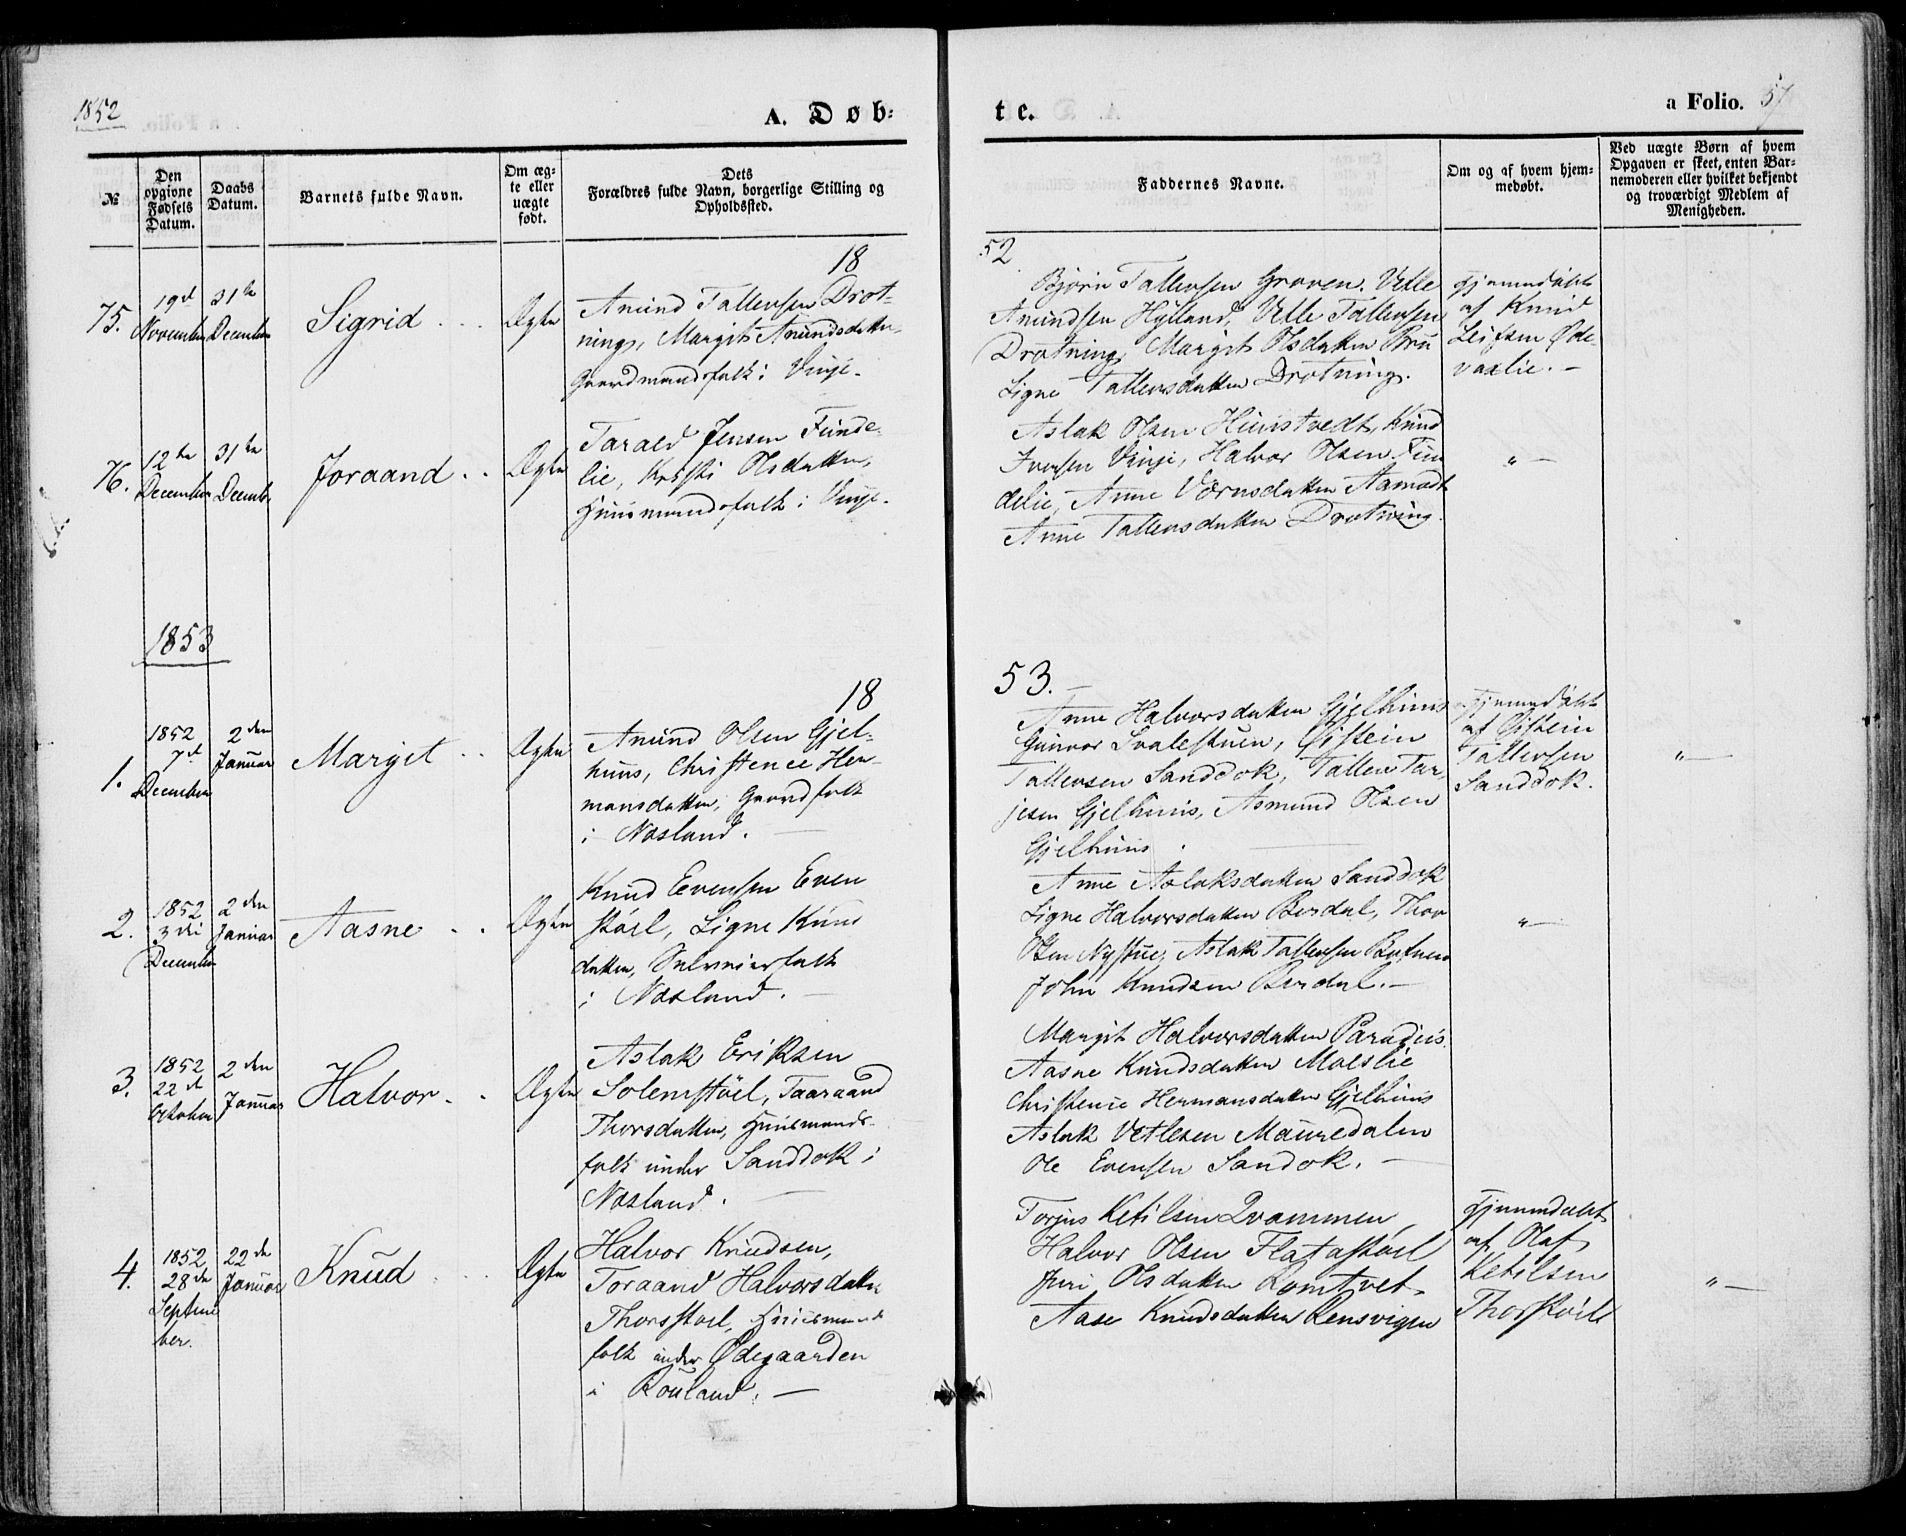 1852
A. Døb-
te.
a Folio. 57
№
Den opgivne Fødsels Datum.
Daabs Datum.
Barnets fulde Navn.
Om ægte eller uægte født.
Dets Forældres fulde Navn, borgerlige Stilling og Opholdssted.
Faddernes Navne.
Om og af hvem hjemmedøbt.
Ved uægte Børn af hvem Opgaven er skeet, enten Barnemoderen eller hvilket bekjendt og troværdigt Medlem af Menigheden.
18
52
75.
19d November
31te December
Sigrid
Ægte
Amund Tallevsen Drot-
ning, Margit Amundsdatter
Gaardmandsfolk i Vinje.
Bjørn Tallevsen Groven. Vetle
Amundsen Hylland, Vetle Tallevsen
Drotning, Margit Olsdatter Bru
Signe Tallevsdatter Drotning.
Hjemmedøbt
af Knud
Leifsen Øde-
vaslie. -
76.
12te December
31te Decemb.
Joraand
Ægte
Tarald Jensen Funde-
lie, Kristi Olsdatter,
Huusmandsfolk i Vinje.
Aslak Olsen Huustvedt, Knud
Iversen Vinje, Halvor Olsen Fun
delie, Anne Aamodt
Anne Tallevsdatter Drotning.
" -
1853
18
53. -
1.
1852
7d
December
2den Januar
Margit
Ægte
Amund Olsen Gjel-
huus, Christence Her-
mansdatter, Gaardfolk
i Næsland. -
Anne Halvorsdatter Gjelhuus
Gunvor Svalestuen, Øistein
Tallevsen Sanddok, Tallev Tar-
jesen Gjelhuus, Asmund Olsen
Gjelhuus.
Hjemmedøbt
af Øistein
Tallevsen
Sanddok.
" -
2.
1852
3die
December
2den Januar
Aasne
Ægte
Knud Evensen Even
støel, Signe Knud
datter, Selveierfolk
i Næsland. -
Anne Aslaksdatter Sanddok
Signe Halvorsdatter Berdal, Thor
Olsen Nystue, Aslak Tallevsen
John Knudsen Berdal. -
" -
3.
1852
22d
October
2den Januar
Halvor
Ægte
Aslak Eriksen
Solemstöel, Taaraand
Thorsdatter, Huusmands-
folk under Sanddok i
Næsland. -
Margit Halvorsdatter Paradiis.
Aasne Knudsdatter Moeslie
Christence Hermansdatter Gjelhuus
Aslak Vetlesen Mauredalen
Ole Evensen Sandok. -
4.
1852
28de
Septem
ber.
22de Januar
Knud
Ægte
Halvor Knudsen,
Toraand Halvorsdatter
Thorsstoel, Huusmands
folk under Ødegaarden
i Rouland. -
Torjus Ketilsen Qvammen,
Halvor Olsen Flatastoel
Juri Olsdatter Romtvet,
Aase Knudsdatter Rensvigen
Hjemmedøbt
af Olaf
Ketilsen
Thorstöel
" -